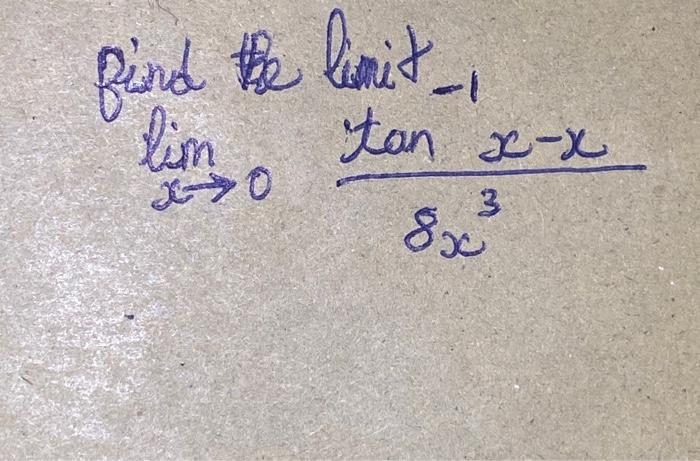 find the limit
lim x→0 tan⁻¹ x-x / 8x³